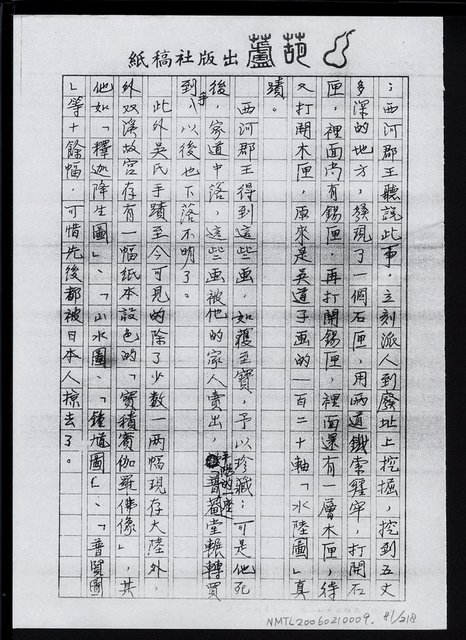 葫蘆出版社稿紙
；西河郡王聽說此事，立刻派人到廢址上挖掘，挖到五丈
多深的地方，發現了一個石匣，用兩道鐵索縲牢，打開石
匣，裡面尚有錫匣，再打開錫匣，裡面還有一層木匣，待
又打開木匣，原來是吳道子画的一百二十軸「水陸圖」真
蹟。
西河郡王得到這些画，如獲至寶，予以珍藏；可是他死
後，家道中落，這些画被他的家人賣出，普菴堂輾轉買
到手，以後也下落不明了。
此外吳氏手蹟至今可見的除了少數一兩幅現存大陸外，
外双溪故宮存有一幅紙本設色的「寶積賓伽羅佛像」，其
他如「釋迦降生圖」、「山水圖」、「鍾馗圖」、「普賢圖
」等十餘幅，可惜先後都被日本人掠去了。
NMTL20060210009. 81/218